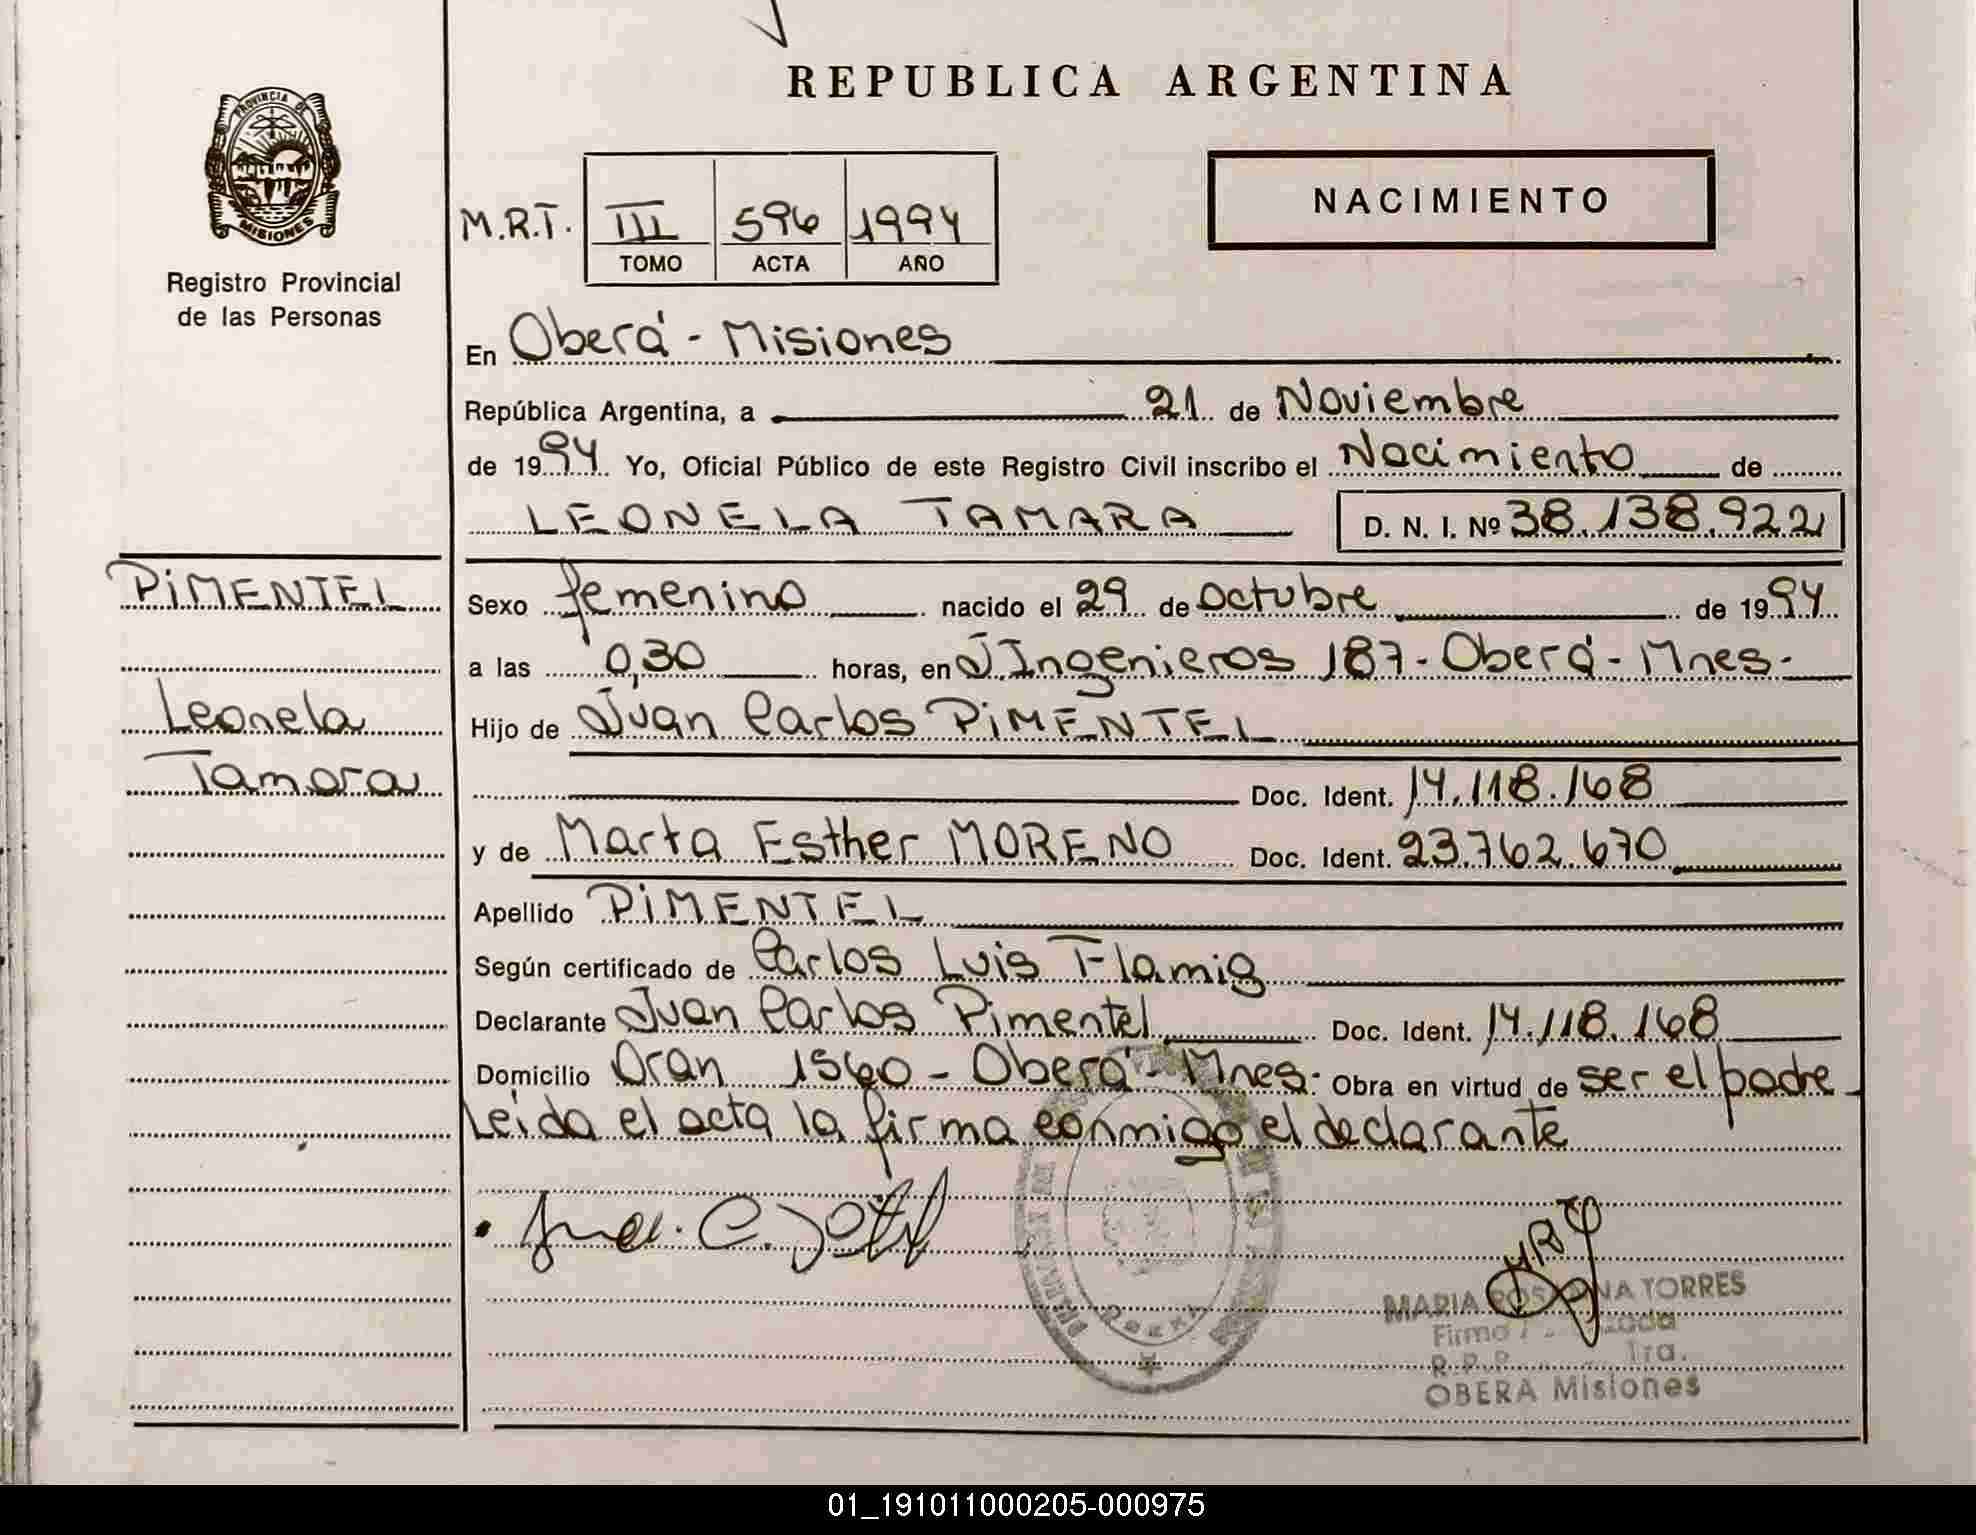 REPUBLICA ARGENTINA
PROVINCIA DE
MISIONES
Registro Provincial
de las Personas
NACIMIENTO
M.R.T. III 596 1994
TOMO ACTA AÑO
En Oberá - Misiones
República Argentina, a 21 de Noviembre
de 1994 Yo, Oficial Público de este Registro Civil inscribo el Nacimiento de
LEONELA TAMARA D. N. I. Nº 38.138.922
PIMENTEL
Leonela
Tamara
Sexo femenino nacido el 29 de Octubre de 1994
a las 0,30 horas, en J.Ingenieros 187- Oberá - Mnes-
Hijo de Juan Carlos PIMENTEL
Doc. Ident. 14.118.168
y de Marta Esther MORENO Doc. Ident. 23.762.670
Apellido PIMENTEL
Según certificado de Carlos Luis Flamig
Declarante Juan Carlos Pimentel Doc. Ident. 14.118.168
Domicilio Oran 1560 - Oberá - Mnes. Obra en virtud de ser el padre
Leida el acta la firma conmigo el declarante
MARIA TORRES
Firma
OBERA
OBERA Misiones
01_191011000205-000975